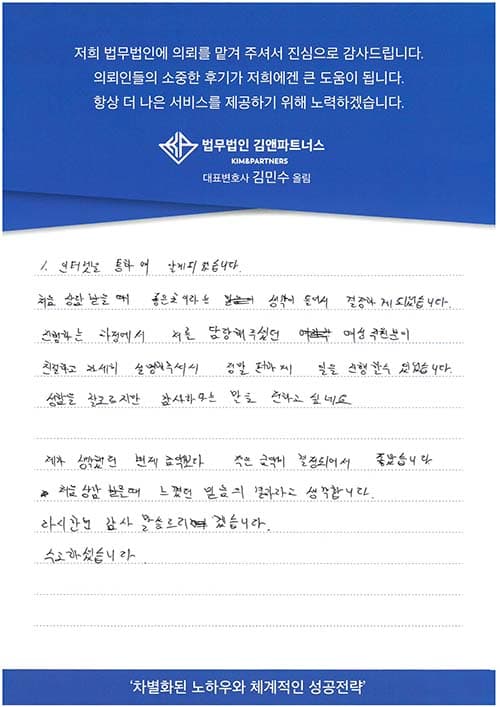 저희 법무법인에 의뢰를 맡겨 주셔서 진심으로 감사드립니다.
의뢰인들의 소중한 후기가 저희에겐 큰 도움이 됩니다.
항상 더 나은 서비스를 제공하기 위해 노력하겠습니다.
법무법인 김앤파트너스
KIM&PARTNERS
대표변호사 김민수 올림
1. 인터넷을 통하여 알게되었습니다.
처음 상담 받을 때 좋은 생각이 들어서 결정하게되었습니다.
진행하는 과정에서 저를 담당해주셨던 여성 직원분이
친절하고 자세히 설명해주셔서 정말 편하게 일을 진행할수 있었습니다.
성함을 잘모르지만 감사하다는 말을 전하고 싶네요
제가 생각했던 변제금액보다 작은 금액이 결정되어서 좋았습니다
처음 상담 받을때 느꼈던 믿음의 결과라고 생각합니다.
다시한번 감사 말씀드리겠습니다.
수고하셨습니다.
'차별화된 노하우와 체계적인 성공전략'